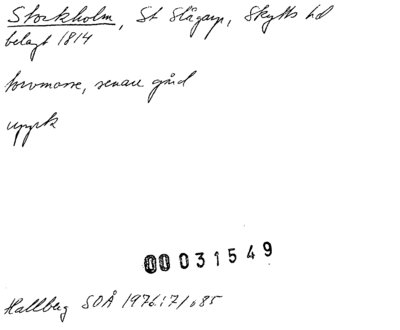 Stockholm, St Slågarp, Skytts hd
belagt 1814
torvmosse, senare gård
uppk
00031549
Hallberg SOÅ 1976:7/s 85